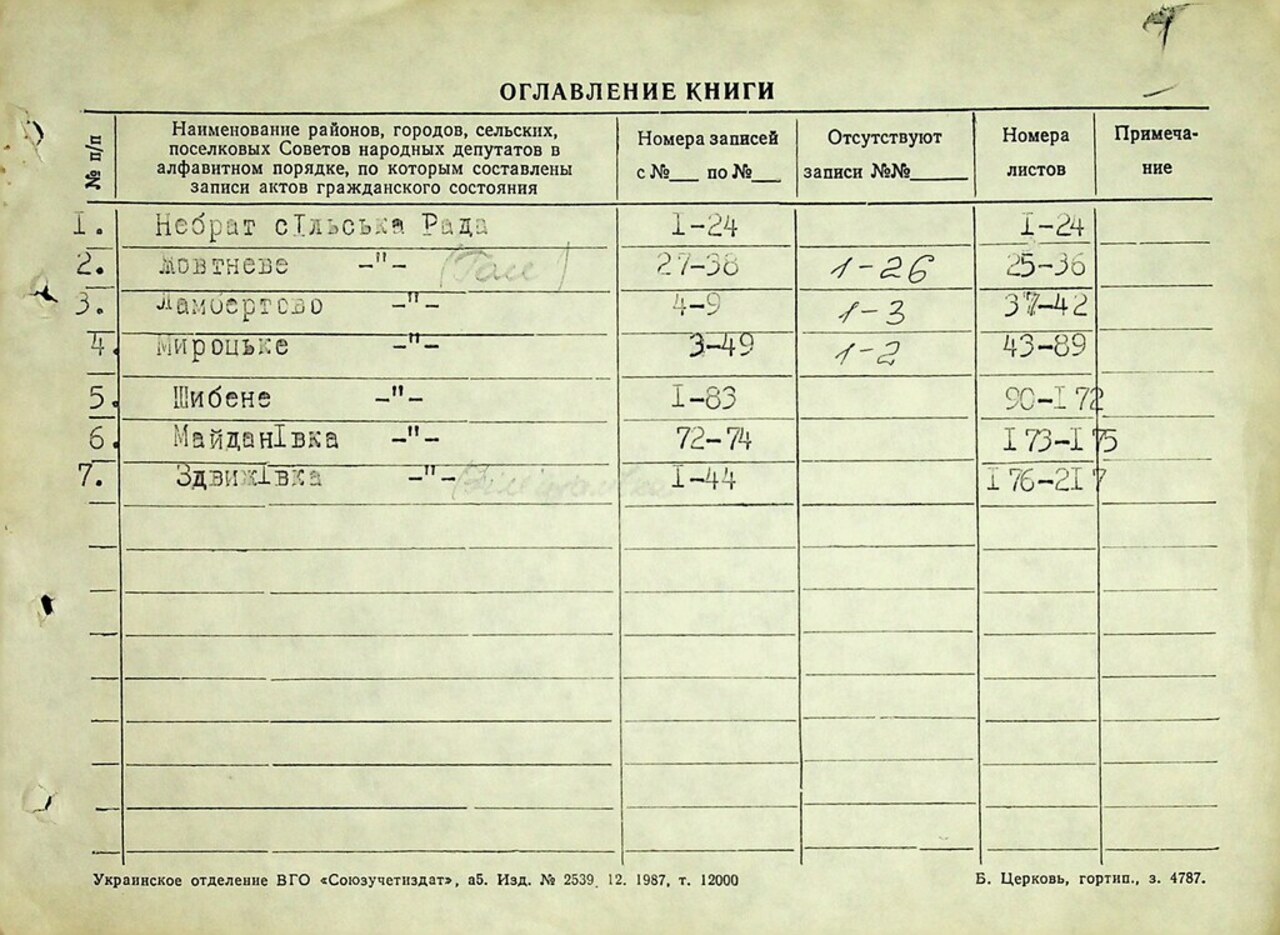 ОГЛАВЛЕНИЕ КНИГИ
№ п/п
Наименование районов, городов, сельских,
поселковых Советов народных депутатов в
алфавитном порядке, по которым составлены
записи актов гражданского состояния
Номера записей
с №___ по №___
Отсутствуют
записи №№______
Номера
листов
Примеча-
ние
I. Небрат сІльська Рада I-24 I-24
2. Жовтневе -"- 27-38 1-26 25-36
3. Ламбертово -"- 4-9 1-3 37-42
4. Мироцьке -"- 3-49 1-2 43-89
5. Шибене -"- I-83 90-I72
6. МайданІвка -"- 72-74 I73-I75
7. ЗдвижІвка -"- I-44 I76-2I7
Украинское отделение ВГО «Союзучетиздат», а5. Изд. № 2539. 12. 1987, т. 12000
Б. Церковь, гортип., з. 4787.